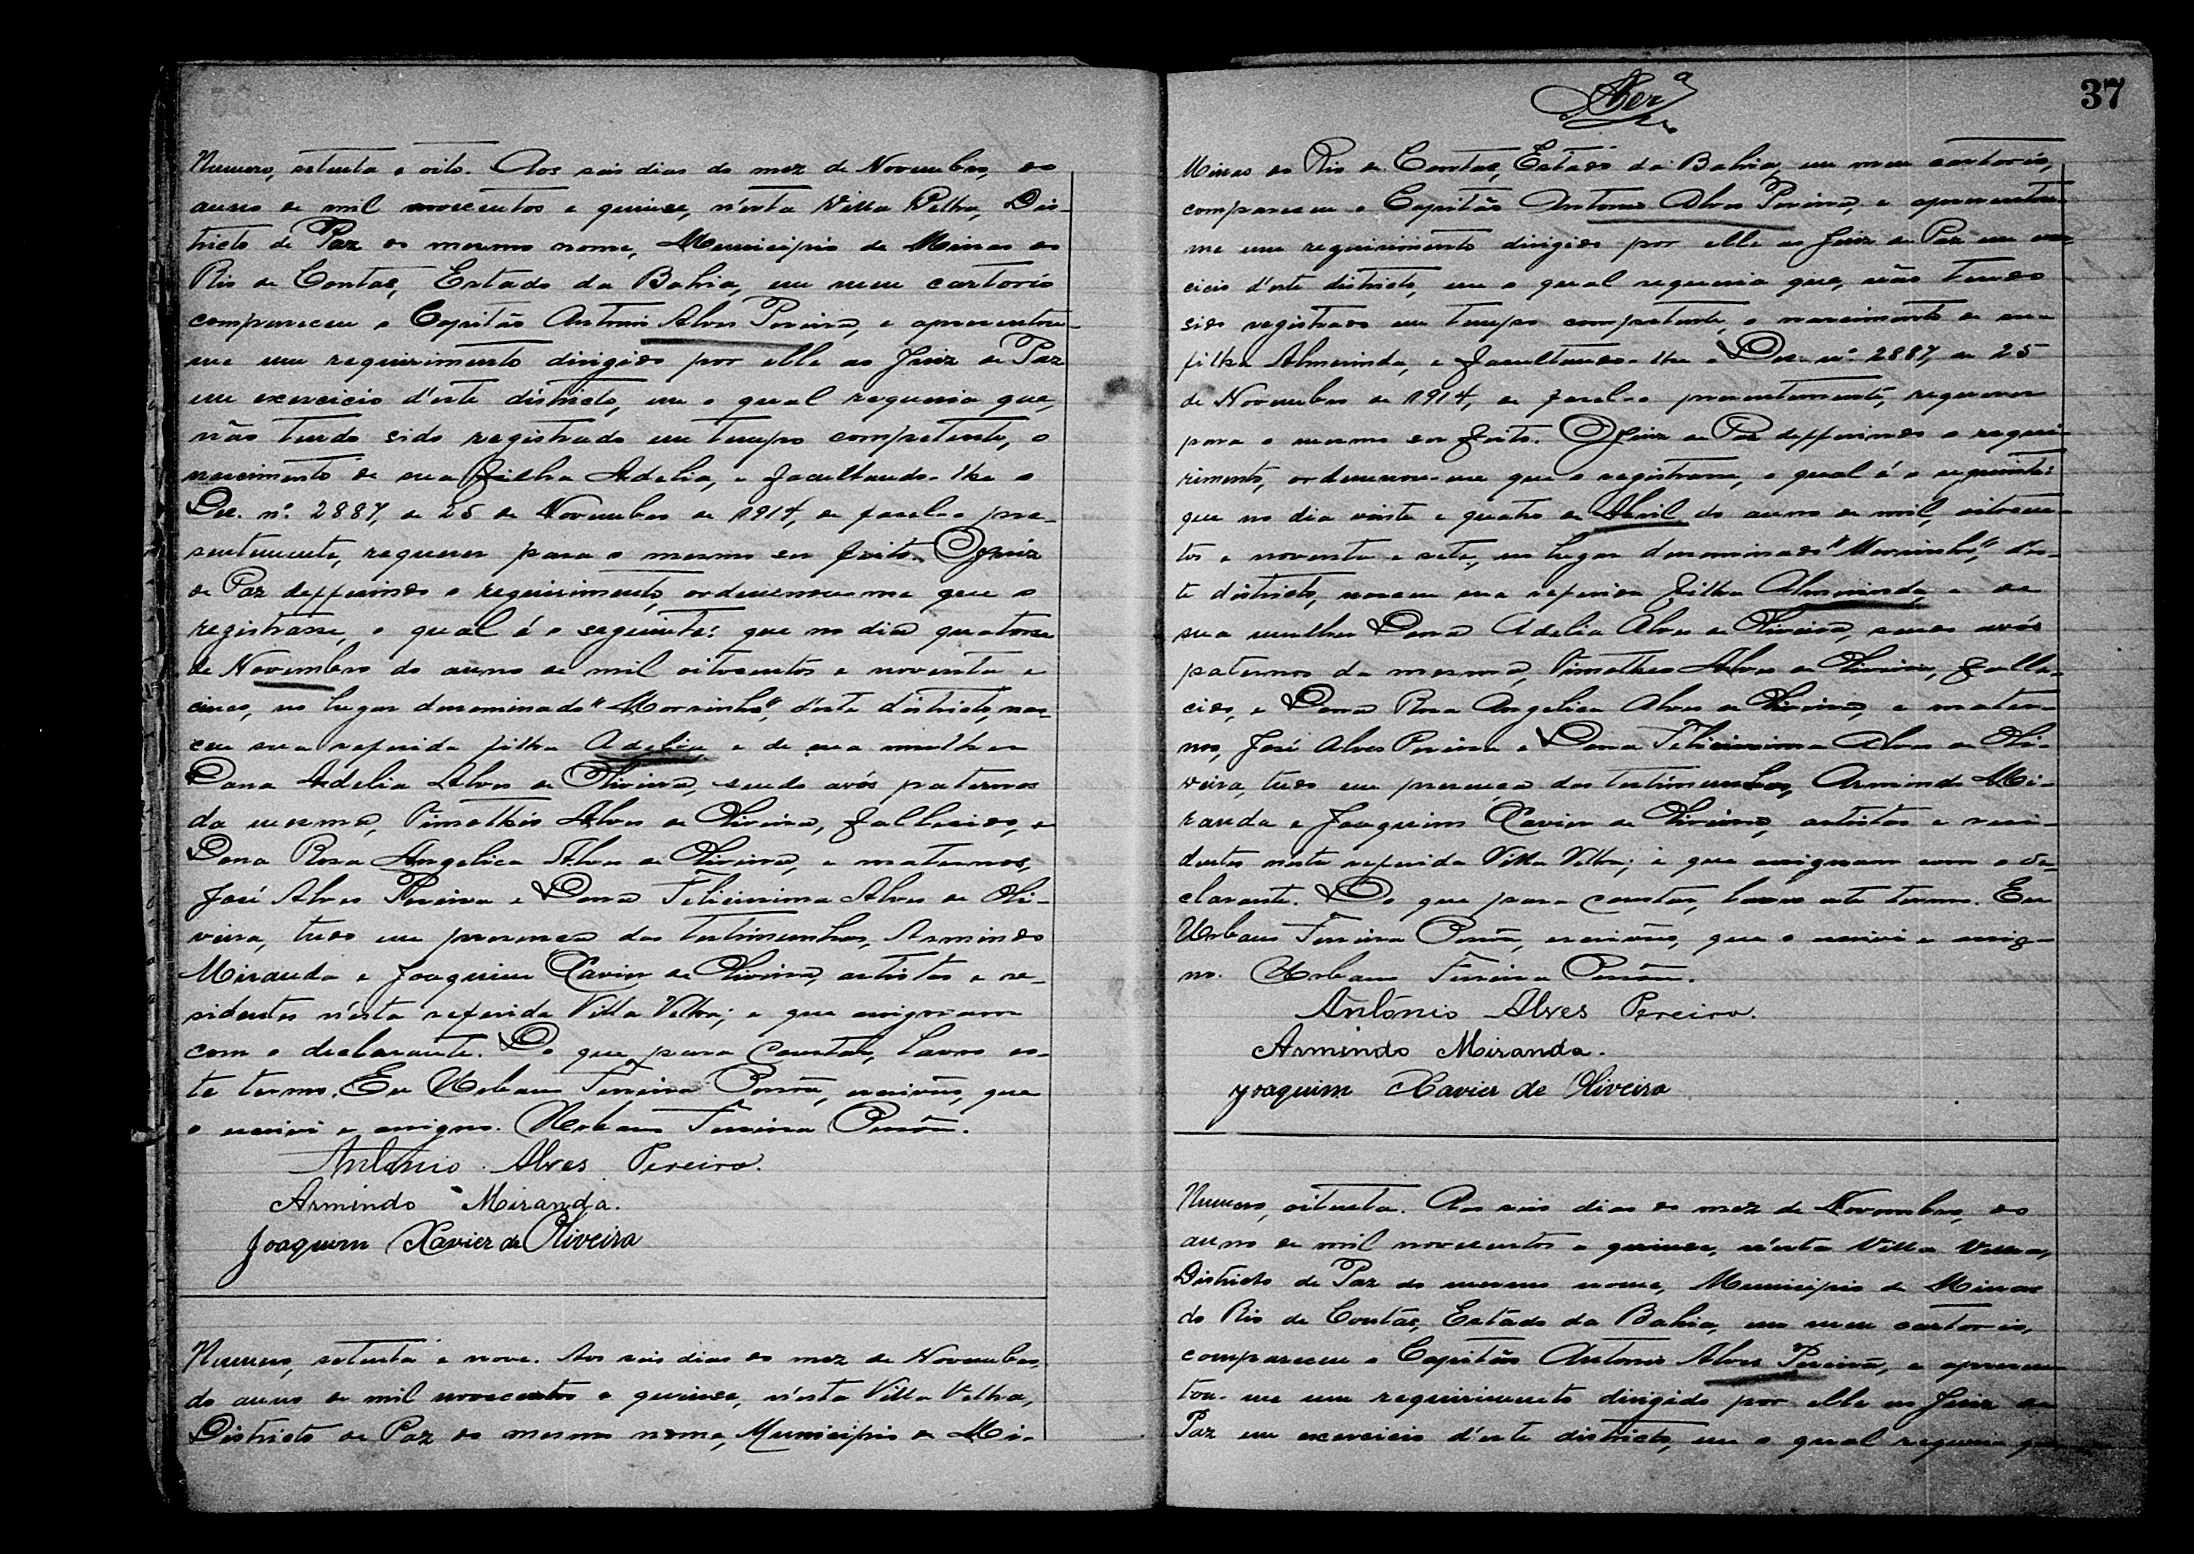 Numero, setenta e oito. Aos seis dias do mez de Novembro, do
anno de mil novecentos e quinse, n'esta Villa Velha, Dis-
tricto de Paz do mesmo nome, Municipio de Minas do
Rio de Contas, Estado da Bahia, em meu cartorio
compareceu o Capitão Antonio Alves Pereira, e apresentou-
me um requirimento dirigido por elle ao Juiz de Paz
em exercicio d'este districto, em o qual requeria que,
não tendo sido registrado em tempo competente, o
nascimento de sua filha Adelia, e facultando-lhe o
Dec. nº 2887, de 25 de Novembro de 1914, de fasel-o pre-
sentemente, requerer para o mesmo ser feito. O Juiz
de Paz defferindo o requirimento, ordenou-me que o
registrasse, o qual é o seguinte: que no dia quatorse
de Novembro do anno de mil oitocentos e noventa e
cinco, no lugar denominado "Morrinho", d'este districto, nas-
ceu sua referida filha Adelia, e de sua mulher
Dona Adelia Alves de Oliveira, sendo avós paternos
da mesma, Timotheo Alves de Oliveira, fallecido, e
Dona Rosa Angelica Alves de Oliveira, e maternos,
José Alves Pereira e Dona Felicissima Alves de Oli-
veira, tudo em presença das testimunhas, Armindo
Miranda e Joaquim Xavier de Oliveira, artistas e re-
sidentes n'esta referida Villa Velha; e que assignam
com o declarante. Do que para constar, lavro es-
te termo. Eu Urbano Ferreira, escrivão, que
o escrivi e assigno. Urbano Ferreira
Antonio Alves Pereira.
Armindo Miranda.
Joaquim Xavier de Oliveira
Numero, setenta e nove. Aos seis dias do mez de Novembro,
do anno de mil novecentos e quinse, n'esta Villa Velha,
Districto de Paz do mesmo nome, Municipio de Mi-
37
Minas do Rio de Contas, Estado da Bahia, em meu cartorio,
compareceu o Capitão Antonio Alves Pereira, e apresentou-
me um requirimento dirigido por elle ao Juiz de Paz em exer-
cicio d'este districto, em o qual requeria que, não tendo
sido registrado em tempo competente, o nascimento de sua
filha Almerinda, e facultando-lhe o Dec. nº 2887, de 25
de Novembro de 1914, de fasel-o presentemente, requerer
para o mesmo ser feito. O Juiz de Paz defferindo o requi-
rimento, ordenou-me que o registrasse, o qual é o seguinte:
que no dia vinte e quatro de Abril do anno de mil, oitocen-
tos e noventa e sete, no lugar denominado "Morrinho", d'es-
te districto, nasceu sua referida filha Almerinda, e de
sua mulher Dona Adelia Alves de Oliveira, sendo avós
paternos da mesma, Timotheo Alves de Oliveira, falle-
cido, e Dona Rosa Angelica Alves de Oliveira, e mater-
nos, José Alves Pereira e Dona Felicissima Alves de Oli-
veira, tudo em presença das testimunhas, Armindo Mi-
randa e Joaquim Xavier de Oliveira, artistas e resi-
dentes n'esta referida Villa Velha; e que assignam com o de-
clarante. Do que para constar, lavro este termo. Eu
Urbano Ferreira, escrivão, que o escrivi e assig-
no. Urbano Ferreira
Antonio Alves Pereira.
Armindo Miranda.
Joaquim Xavier de Oliveira
Numero, oitenta. Aos seis dias do mez de Novembro, do
anno de mil novecentos e quinse, n'esta Villa Velha,
Districto de Paz do mesmo nome, Municipio de Minas
do Rio de Contas, Estado da Bahia, em meu cartorio,
compareceu o Capitão Antonio Alves Pereira, e apresen-
tou-me um requirimento dirigido por elle ao Juiz de
Paz em exercicio d'este districto, em o qual requeria que